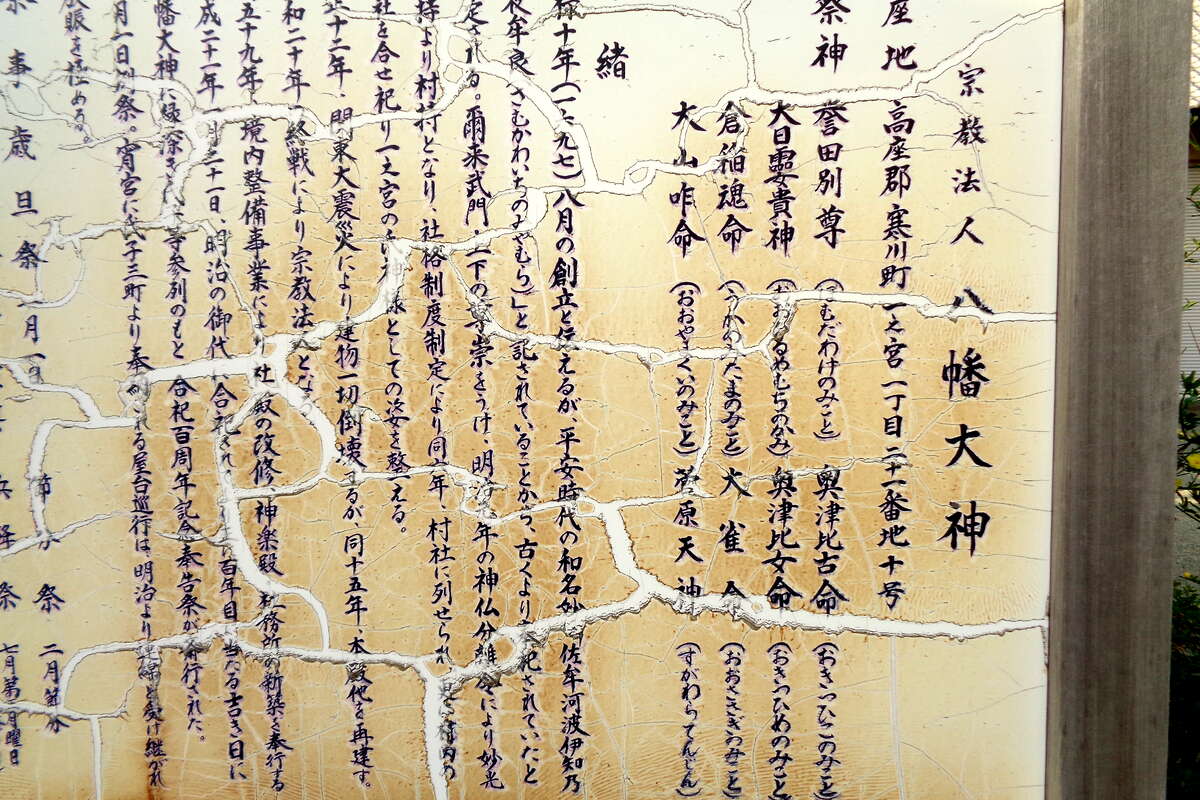 宗教法人 八幡大神
座地 高座郡寒川町一之宮一丁目二十一番地十号
祭神 誉田別尊 (むだわけのみこと) 奥津比古命 (おきつひこのみこと)
大日霊貴神 (おおひるめむちのかみ) 奥津比女命 (おきつひめのみこと)
倉稲魂命 (うかのみたまのみこと) 大雀命 (おおさざぎのみこと)
大山咋命 (おおやまくいのみこと) 菅原天神 (すがわらてんじん)
緒
禄十年(一六九七)八月の創立と伝えるが、平安時代の和名抄 佐牟河波伊知乃
夜牟良(さむかわいちのみやむら)」と記されていることから、古くより 祀されていたと
定される。爾来武門 下の 崇をうけ、明治 年の神仏分離令により妙光
持より村持となり、社格制度制定により同六年、村社に列せられ
社を合せ祀り一之宮の としての姿を整える。
正十二年、関東大震災により建物一切倒壊するが、同十五年、本殿他を再建す。
和二十年、終戦により宗教法人とな
五十九年、境内整備事業により社殿の改修、神楽殿、社務所の新築を奉行する
成二十一年 月三十一日、明治の御代に合祀され 百年目に当たる吉き日に
幡大神に縁深き 等参列のもと、合祀百周年記念奉告祭が 行された。
月一日例祭。宵宮に氏子三町より奉 される屋台巡行は、明治より連綿と受け継がれ
賑を極める。
事 歳旦祭 一月一日 節分祭 二月節分
祭 七月第 月曜日